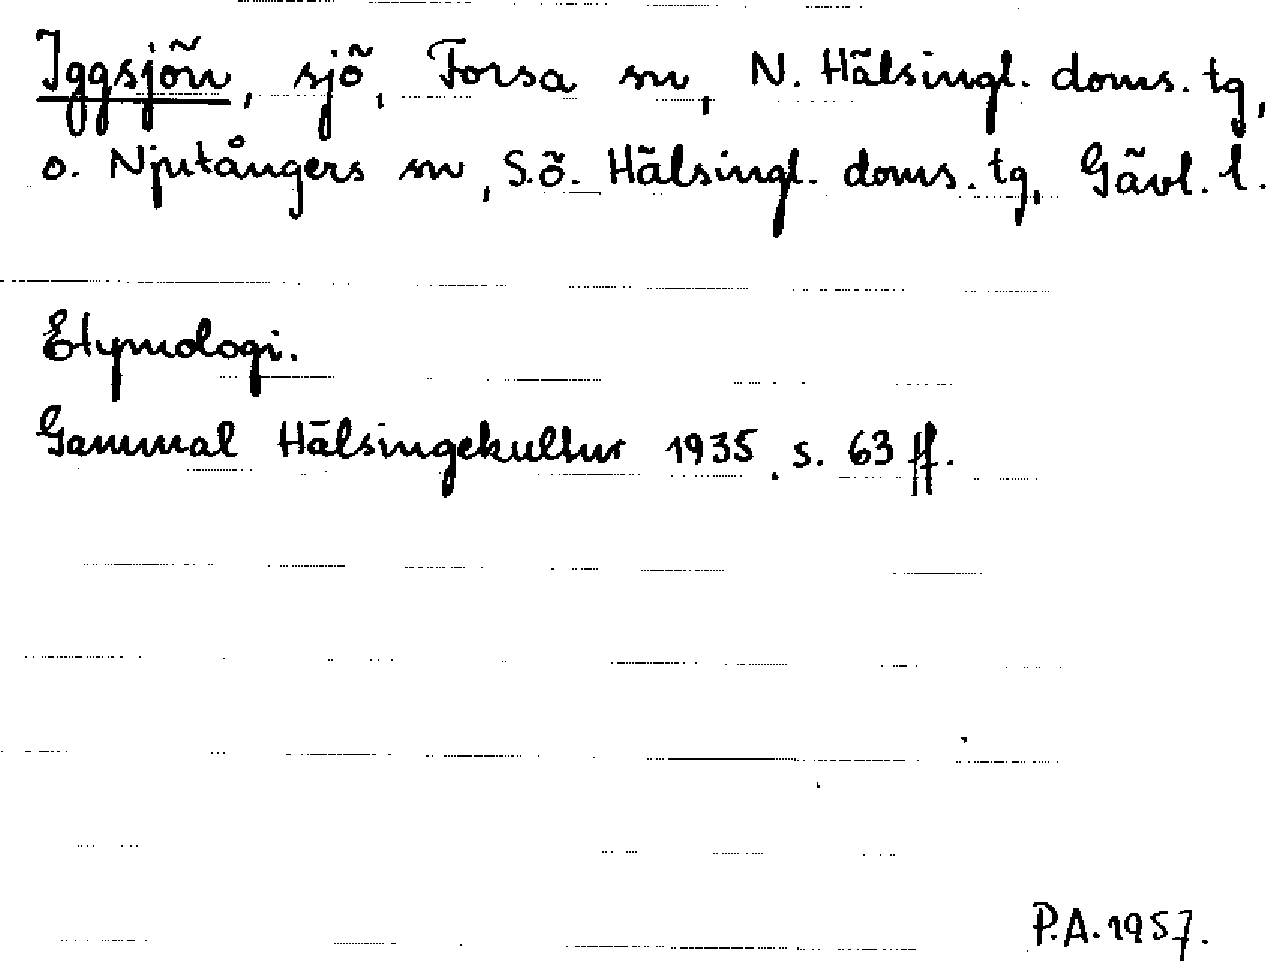 Iggsjön, sjö, Forsa sn, N. Hälsingl. doms. tg,
o. Njutångers sn, S.ö. Hälsingl. doms. tg, Gävl. l.
Etymologi.
Gammal Hälsingekultur 1935, s. 63 ff.
P.A. 1957.